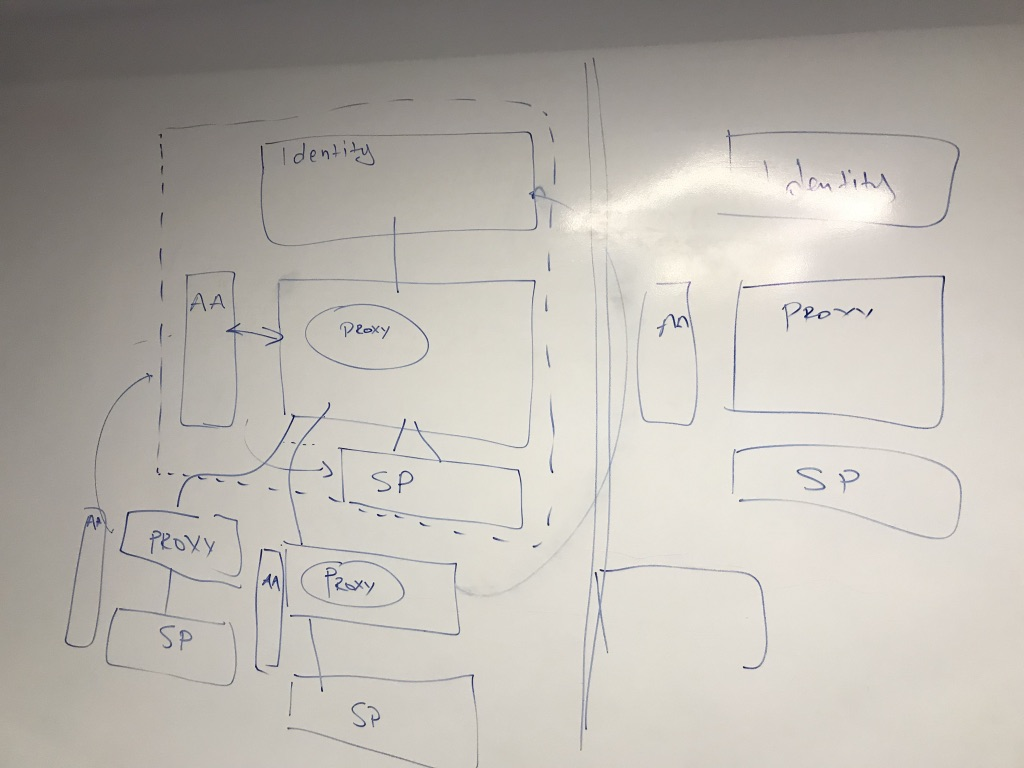 Identity
AA
PROXY
SP
AA
PROXY
SP
AA
PROXY
SP
Identity
AA
PROXY
SP